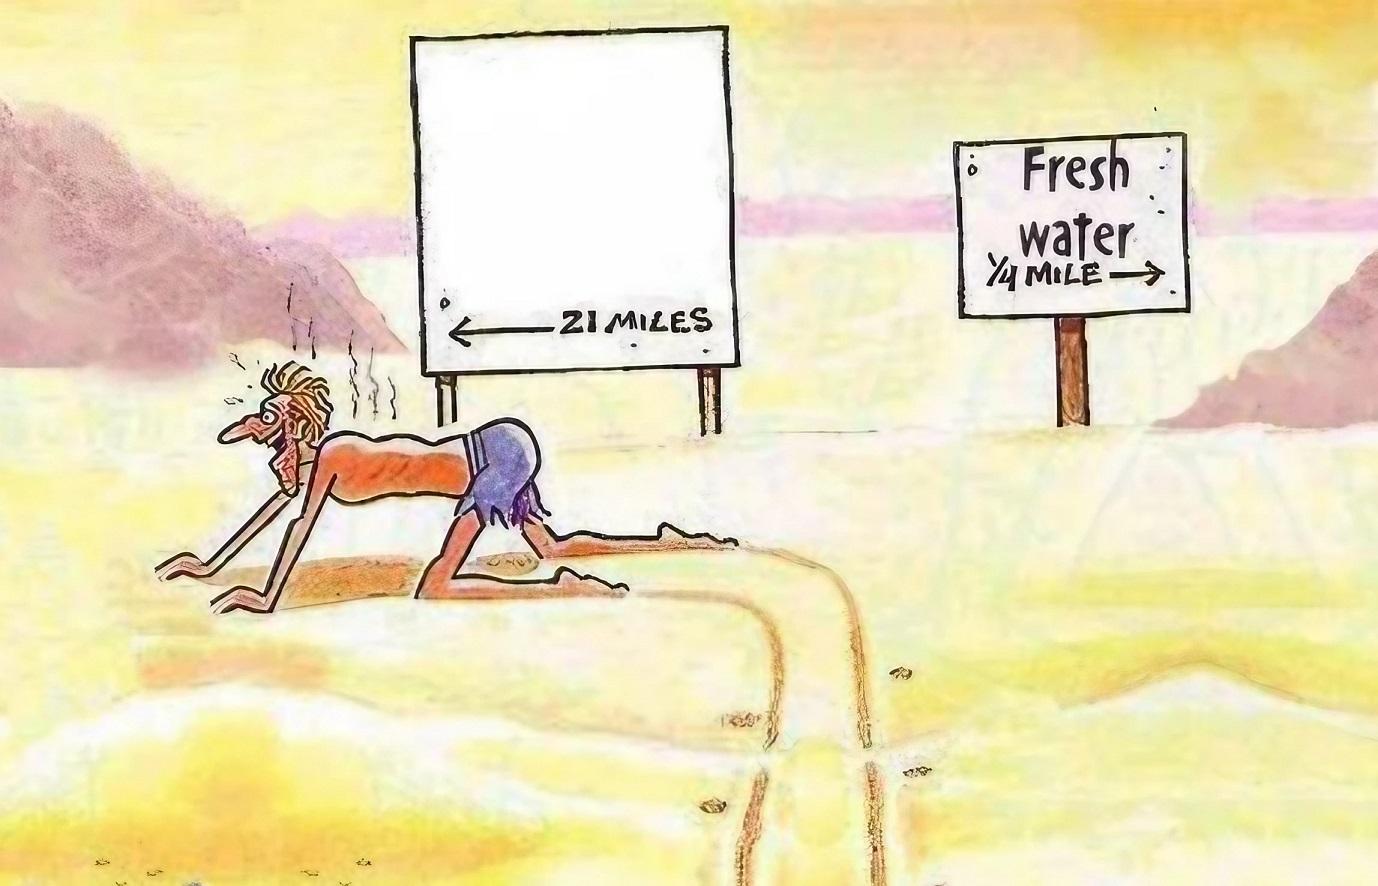 21 MILES
Fresh
water
1/4 MILE